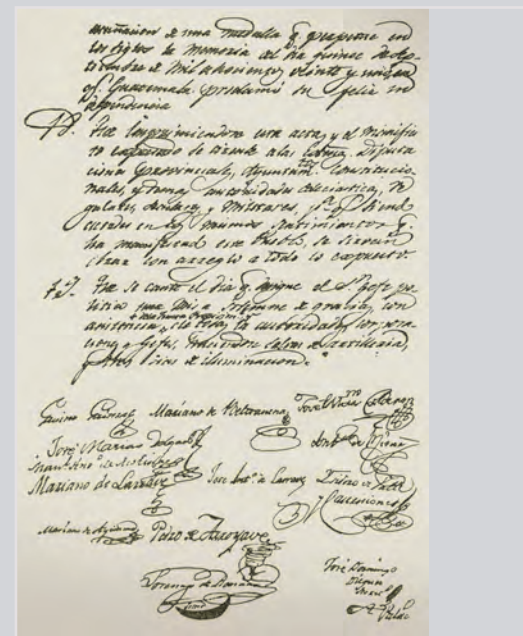 acuñacion de una medalla q. perpetue en
los siglos la memoria del dia quince de Sep-
tiembre de mil ochocientos veinte y uno en
q. Guatemala proclamó su feliz in
dependencia
Que imprimiendose esta acta, y el manifies
to expresado se circule a las Diputa
ciones provinciales, Ayuntam. Constitucio
nales, y demas autoridades eclesiasticas, Re
gulares, y Militares, p. q. siendo
en los mismos sentimientos q.
ha manifestado este Pueblo, se sirvan
obrar con arreglo a todo lo expuesto.
Que se cante el dia q. designe el S. Gefe po
litico una Misa solemne de gracias, con
asistencia de todas las autoridades, corpora
ciones y Gefes, haciendose salvas de artilleria,
y tres dias de iluminacion.
Gavino Gainza Mariano de Beltranena José
José Matias Delgado
Mariano de Larrave José Ant. de Larrave Isidro de Valle
y Castriciones
Pedro de Arroyave
Lorenzo de Romaña
José Domingo
Dieguez